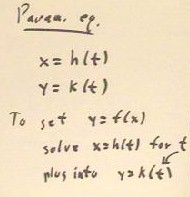 Param. eq.
x = h(t)
y = k(t)
To get y = f(x)
solve x = h(t) for t
plug into y = k(t)